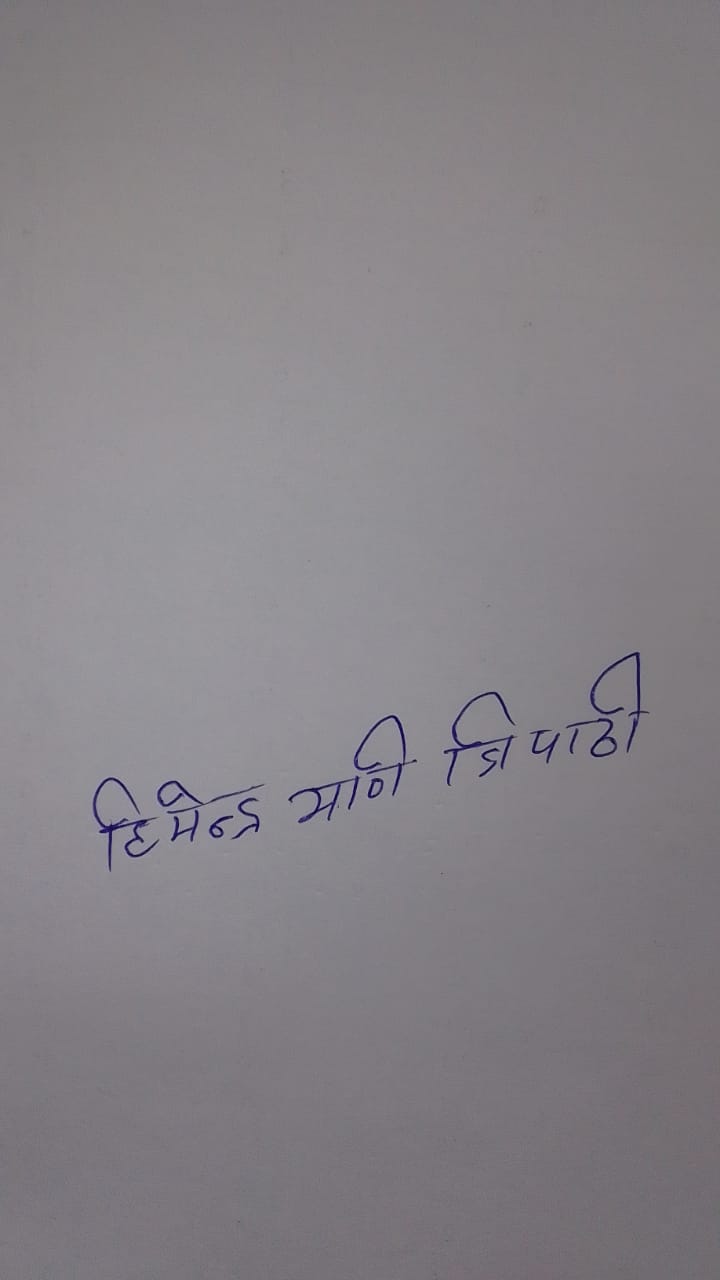 हिमेन्द्र मणि त्रिपाठी